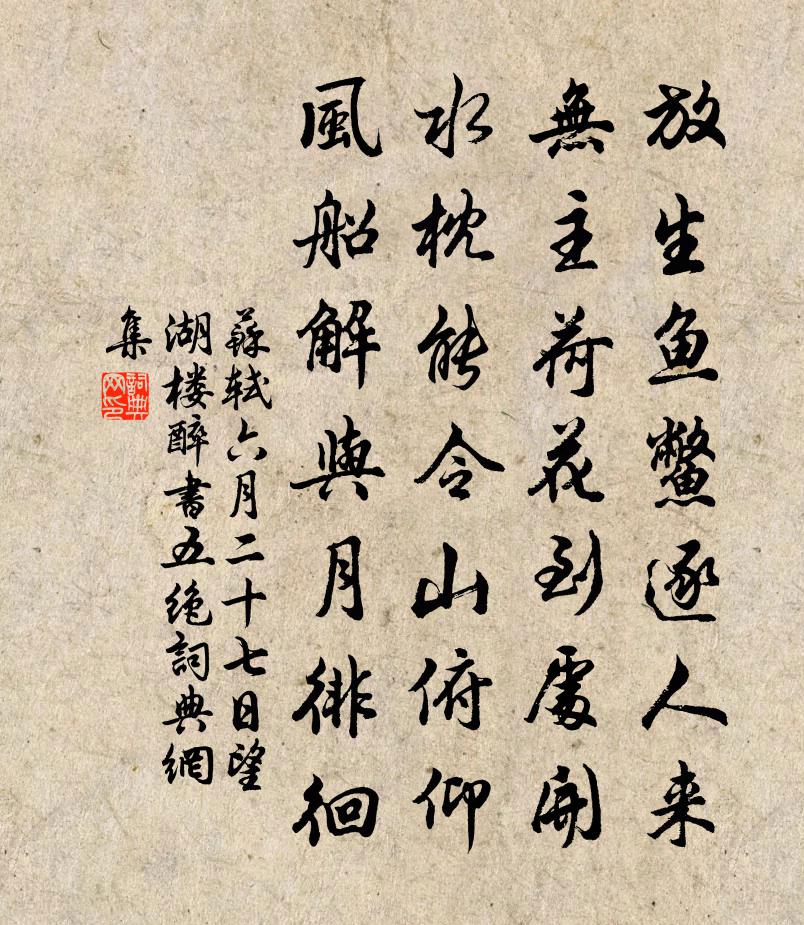 放生鱼鱉逐人来
無主荷花到處開
水枕能令山俯仰
風船解與月徘徊
蘇軾六月二十七日望
湖楼醉書五絶詞典網
集
詞典
网印